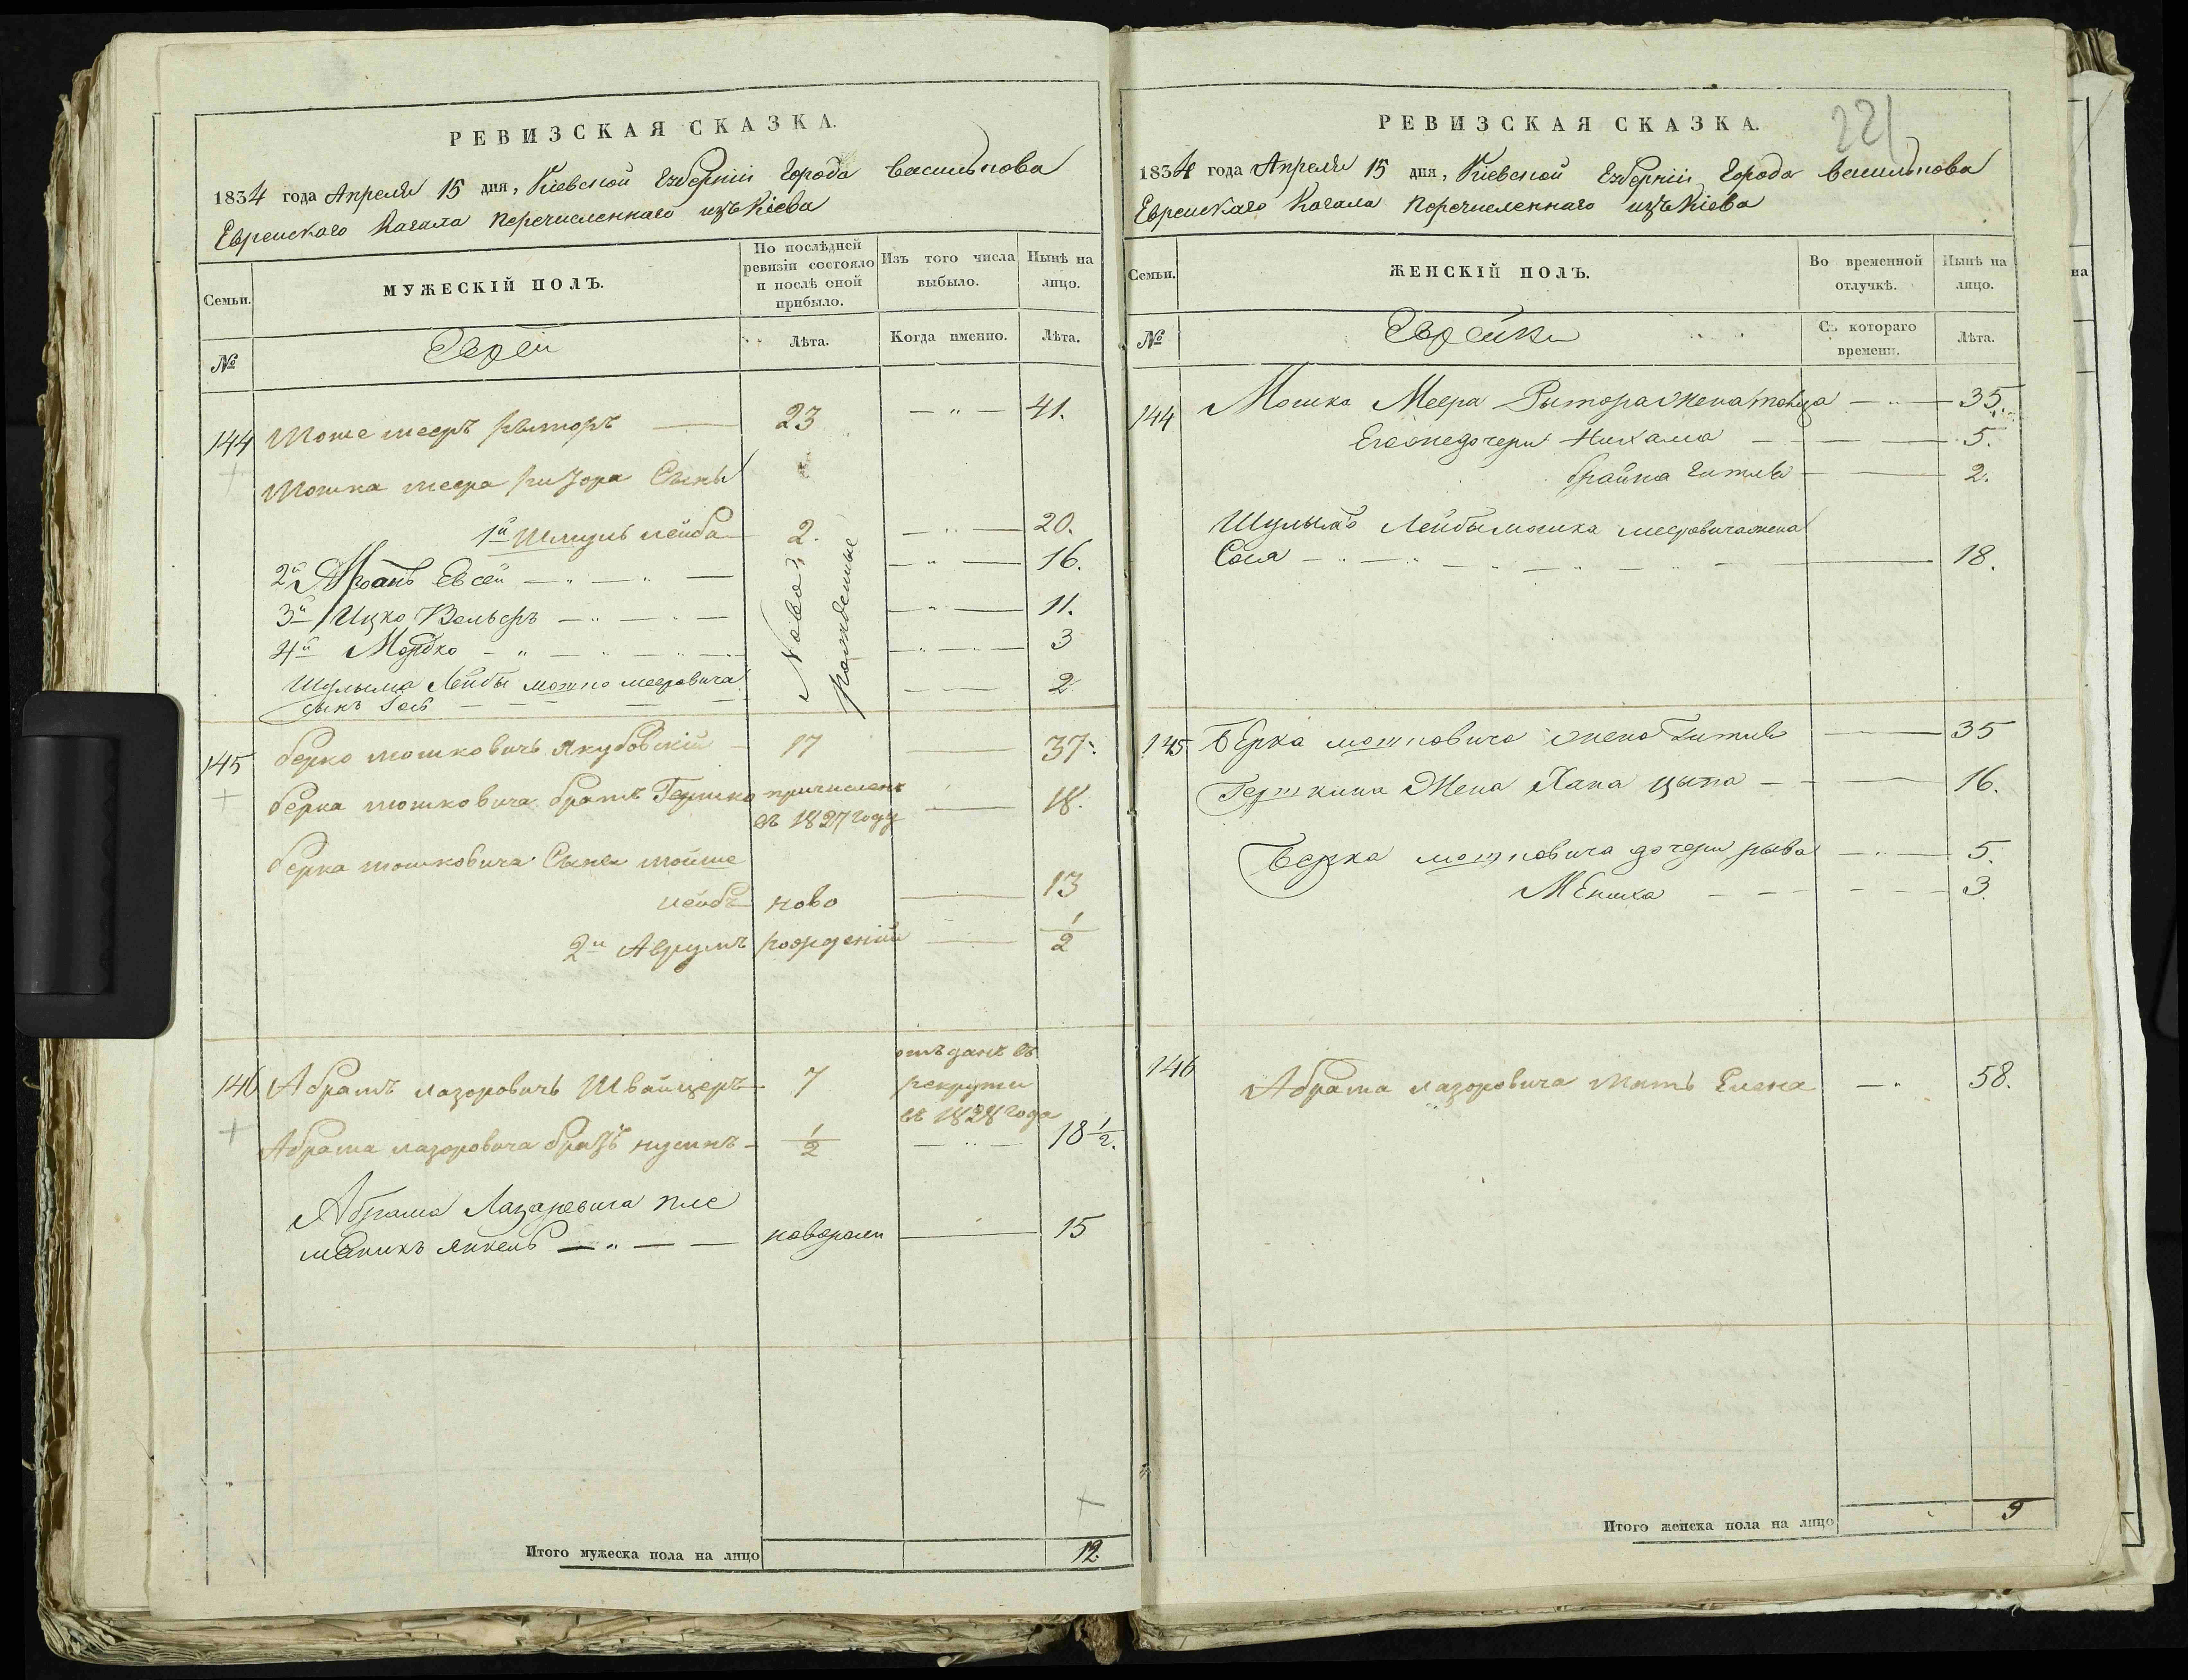 РЕВИЗСКАЯ СКАЗКА.
1834 года Апреля 15 дня, Кіевской Губерніи Города Василькова
Евреискаго Кагала перечисленнаго изъ Кіева
Семьи.
МУЖЕСКІЙ ПОЛЪ.
По послѣдней ревизіи состояло и послѣ оной прибыло.
Изъ того числа выбыло.
Нынѣ на лицо.
№
Евреи
Лѣта.
Когда именно.
Лѣта.
144 Моше мееръ рыторъ — 23 — " — 41.
Мошка меера Сыны
1й Шмуль лейба — 2. — " — 20.
2й Евсей — " — " — — " — 16.
3й Ицко Вольфъ — " — " — — " — 11.
4й Мордко — " — " — — " — 3
Ново рожденные
Шулыма Лейбы мошко мееровича — — 2
сынъ
145 берко мошковичь якубовскій — 17 — 37.
берка мошковича братъ Гершко причисленъ
въ 1827 году — 18.
берка мошковича Сыны мойше
лейбъ ново — 13
2й Аврумъ рожденіи — 1/2
отъданъ въ
146 Абрамъ лазоровичь Швайцеръ — 7 рекруты
въ 1828 года
Абрама лазоровича братъ нусинъ — 1/2 — " — 18 1/2.
Абрама Лазаревича пле
мѣникъ янкель — " — — новорож — 15
Итого мужеска пола на лицо 12.
РЕВИЗСКАЯ СКАЗКА.
221
1834 года Апреля 15 дня, Кіевской Губерніи Города Василькова
Евреискаго Кагала перечисленнаго изъ Кіева
Семьи.
ЖЕНСКІЙ ПОЛЪ.
Во временной отлучкѣ.
Нынѣ на лицо.
№
Еврейки
Съ котораго времени.
Лѣта.
144 Мошка Меера Рытора жена — " — 35.
Егожедочери Нихама — — — 5.
брайна Гитля — — 2.
Шулыма Лейбы мошка мееровича жена
Сося — " — " — " — " — 18.
145 Берка мошковича жена Гитля — 35
Гершкина Жена Хана цыпа — — 16.
Берка мошковича дочери рыва — " — 5.
Мениха — — — 3.
146 Абрама лазоровича мать Елена — " 58.
Итого женска пола на лицо 9